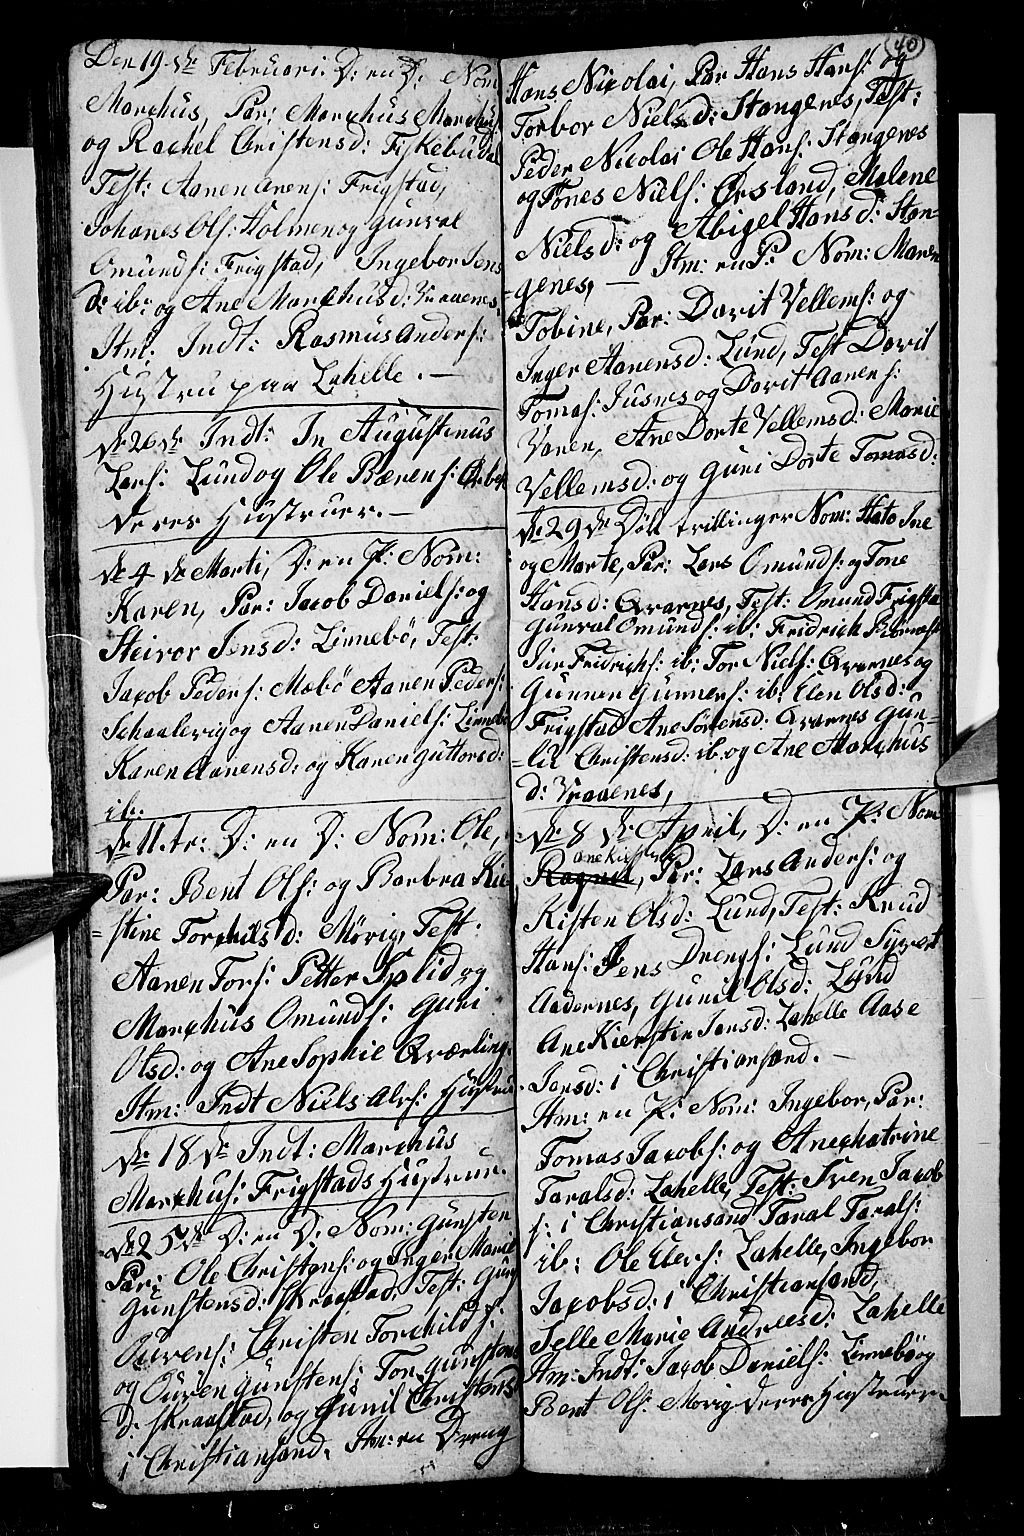 Den 19 de Februari. D: en D: Nom
Marchus, Par: Marchus Marchus
og Rachel Christensd: Fiskebudal
Test: Aanen Arens: Frigstad,
Johanes Ols: Holmen og Gunval
Omunds: Frigstad, Ingebor Jens
d: ib: og Ane Marchusd: Vraaenes.
Itm: Indt: Rasmus Anders:
Hustru paa Lahelle. —
de 26 de Indt: In Augustinus
Lars: Lund og Ole Bærens:
deres Hustruer. —
de 4 de Marti, D: en P: Nom:
Karen, Par: Jacob Daniels: og
Steivor Jensd: Linnebö, Test:
Jacob Peders: Mæbö Aanen Peders:
Schaalevig og Aanen Daniels: Linnebö
Karen Aanensd: og Karen Guttorsd:
ib:
de 11. tr: D: en D: Nom: Ole,
Par: Bent Ols: og Barbra Kie
= stine Torchilsd: Mövig, Test:
Aanen Tors: Petter Splid og
Marchus Omunds: Guri
Olsd: og Ane Sophie Qværling.
Itm: Indt Niels Alfs: Hustru.
de 18 de Indt: Marchus
Marchus: Frigstads Hustrue.
de 25 de D: en D: Nom: Gunsten
Par: Ole Christens: og Inger Marie
Gunstensd: Skraastad, Test: Guns
Ouvens: Christen Torchilds:
og Ouven Gunstens: Ton Gunstens
d: Skraastad, og Gunil Christens
i Christiansand. Itm: en Dreng
40
Hans Nicolai, Par Hans Hans: og
Torbor Nielsd: Stangenes, Test:
Peder Nicolai Ole Hans: Stangenes
og Tönes Niels: Örsland, Malene
Nielsd: og Abigel Hansd: Stan=
genes, — Itm: en P: Nom: Maren
Tobine, Par: Davit Vellems: og
Inger Aanensd: Lund, Test Davit
Tomas: Jusnes og Davit Aanens:
Voren, Ane Dorte Vellemsd: Marie
Vellemsd: og Guri Dorte Tomasd:
de 29 de Döbt trillinger Nom: Ine
og Marte, Par: Lars Omunds: og Tone
Hansd: Qvarnes, Test: Omund Frigsta
Gunval Omunds: ib: Fridrich
Fridrichs: ib: Tor Niels: Qvarnes og
Gunner Gunners: ib: Elen Olsd:
Frigstad Ane Sörensd: Qvarnes Gun=
= lu Christensd: ib. og Ane Marchus
d: Vraaenes,
de 8 de April, D: en P: Nom
Ane Kirstine
Ragnil, Par: Lars Anders: og
Kisten Olsd: Lund, Test: Knud
Hans: Jens Drengs: Lund Syvert
Aadernes, Gunil Olsd: Lund
Ane Kierstin Jansd: Lahelle Aase
Jensd: i Christiansand. —
Itm: en P: Nom: Ingebor, Par:
Tomas Jacobs: og Anechatrine
Taralsd: Lahelle, Test: Sven Jacob
s: i Christiansand Taral Tarals:
ib: Ole Elers: Lahelle, Ingebor
Jacobsd: i Christiansand,
Selle Marie Andreesd: Lahelle
Itm: Indt: Jacob Daniels: Linnebö og
Bent Ols: Movig deres Hustruer.